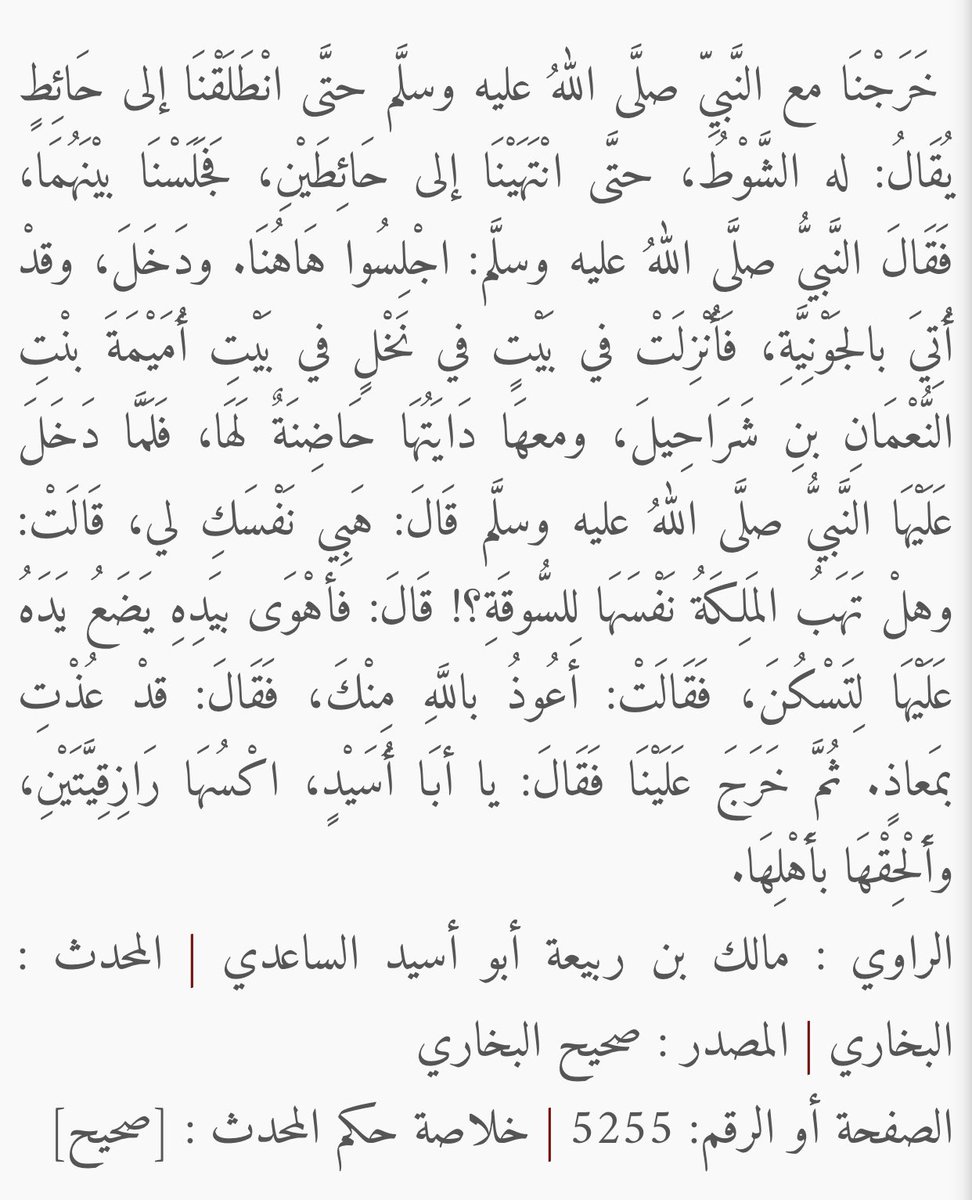 خَرَجْنَا مع النَّبيِّ صلَّى اللهُ عليه وسلَّم حتَّى انْطَلَقْنَا إلى حَائِطٍ
يُقَالُ: له الشَّوْطُ، حتَّى انْتَهَيْنَا إلى حَائِطَيْنِ، فَجَلَسْنَا بيْنَهُمَا،
فَقَالَ النَّبيُّ صلَّى اللهُ عليه وسلَّم: اجْلِسُوا هَاهُنَا. ودَخَلَ، وقدْ
أُتِيَ بالجَوْنِيَّةِ، فَأُنْزِلَتْ في بَيْتٍ في نَخْلٍ في بَيْتِ أُمَيْمَةَ بنْتِ
النُّعْمَانِ بنِ شَرَاحِيلَ، ومعهَا دَايَتُهَا حَاضِنَةٌ لَهَا، فَلَمَّا دَخَلَ
عَلَيْهَا النَّبيُّ صلَّى اللهُ عليه وسلَّم قَالَ: هَبِي نَفْسَكِ لي، قَالَتْ:
وهلْ تَهَبُ المَلِكَةُ نَفْسَهَا لِلسُّوقَةِ؟! قَالَ: فأهْوَى بيَدِهِ يَضَعُ يَدَهُ
عَلَيْهَا لِتَسْكُنَ، فَقَالَتْ: أعُوذُ باللَّهِ مِنْكَ، فَقَالَ: قدْ عُذْتِ
بمَعَاذٍ. ثُمَّ خَرَجَ عَلَيْنَا فَقَالَ: يا أبَا أُسَيْدٍ، اكْسُهَا رَازِقِيَّتَيْنِ،
وأَلْحِقْهَا بأَهْلِهَا.
الراوي : مالك بن ربيعة أبو أسيد الساعدي | المحدث :
البخاري | المصدر : صحيح البخاري
الصفحة أو الرقم: 5255 | خلاصة حكم المحدث : [صحيح]